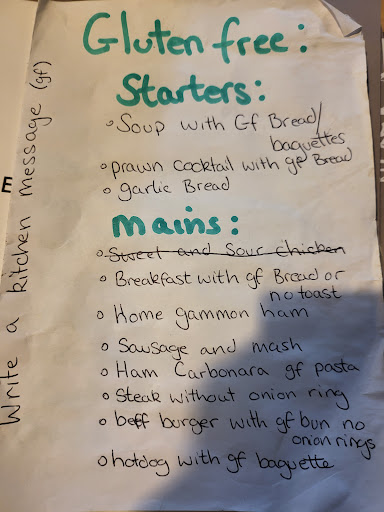 Gluten free:
Starters:
Soup with Gf Bread/
baguettes
prawn cocktail with gf Bread
garlic Bread
mains:
Sweet and Sour chicken
Breakfast with gf Bread or
no toast
Home gammon ham
Sausage and mash
Ham Carbonara gf pasta
Steak without onion ring
beff burger with gf bun no
onion rings
hotdog with gf baguette
Write a kitchen message (gf)
E